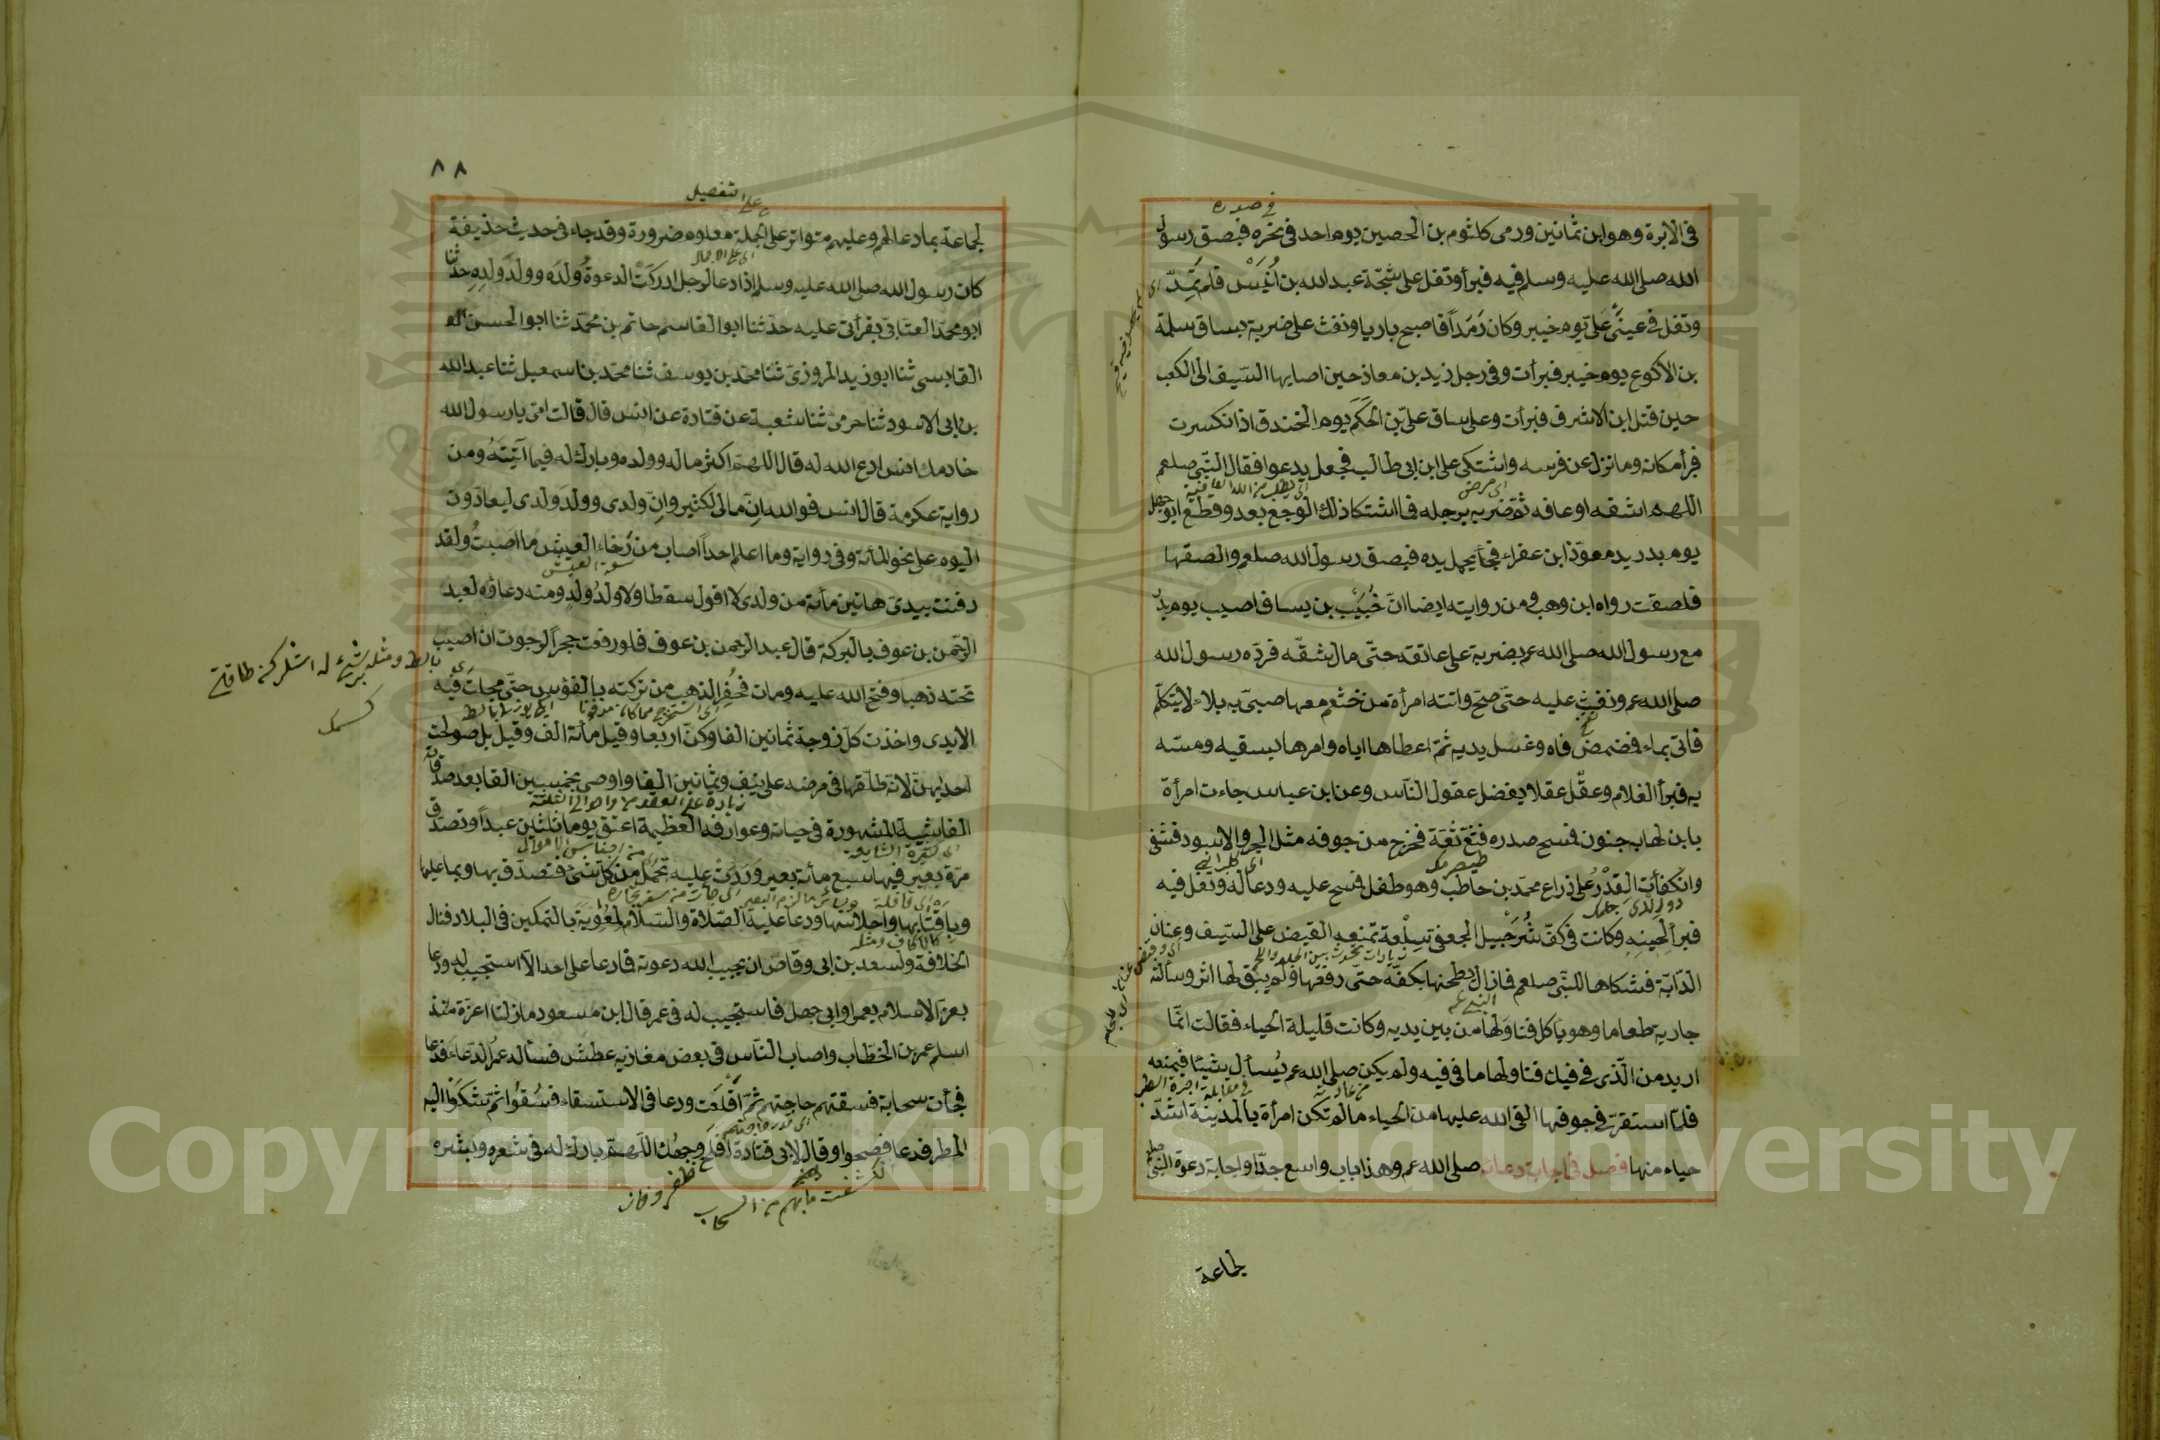 فى الابرة وهو ابن ثمانين ورمى كلثوم بن الحصين يوم احد فى نحره فبصق رسول
الله صلى الله عليه وسلم فيه فبرأ وتفل على شجّة عبد الله بن اُنَيْس فلم تمدّ
وتفل فى عينَىْ علىّ يوم خيبر وكان رَمَدًا فاصبح باريا ونفث على ضربة بساق سلمة
بن الاكوع يوم خيبر فبرأت وفى رجل زيد بن معاذ حين اصابها السيف الى الكعب
حين قتل ابن الاشرف فبرأت وعلى ساق علىّ بن الحَكَم يوم الخندق اذ انكسرت
فبرأ مكانه وما نزل عن فرسه واشتكى على ابن ابى طالب فجعل يدعو افقال النبّى صلعم
اللهم اشفه او عافه ثمّ ضربه برجله فما اشتكا ذلك الوجع بعد وقطع ابو جهل
يوم بدر يد معوّذ ابن عفراء فجأ يحمل يده فبصق رسول الله صلعم والصقها
فلصقت رواه ابن وهب ومن روايته ايضا انّ خُبَيْب بن يساف اصيب يوم بدر
مع رسول الله صلى الله عم بضربة على عاتقه حتّى مال شقّه فردّه رسول الله
صلى الله عم ونفث عليه حتّى صحّ واتته امرأة من خثعم معها صبىّ به بلاء لا يتكلّم
فاتى بماء فمضمض فاه وغسل يديه ثمّ اعطاها اياه وامرها بسقيه ومسّه
به فبرأ الغلام وعقل عقلا يفضل عقول النّاس وعن ابن عباس جاءت امرأة
بابن لها به جنون فمسح صدره فثغّ ثغّة فخرج من جوفه مثل الجرو الاسود فشفى
وانكفأت القِدْرُ على ذراع محمّد بن حاطب وهو طفل فمسح عليه ودعا له وتفل فيه
فبرأ لحينه وكانت فى كفّ شُرَحْبِيل الجعفى سِلْعة تمنعه القبض على السّيف وعنان
الدّابّة فشكاها للنبّى صلعم فما زال يطحنها بكفّه حتّى رفعها ولم يبق لها اثر وسألته
جارية طعاما وهو يأكل فناولها من بين يديه وكانت قليلة الحياء فقالت انّما
اريد من الّذى فى فيك فناولها ما فى فيه ولم يكن صلى الله عم يُسأل شيئا فيمنعه
فلمّا استقرّ فى جوفها القى الله عليها من الحياء ما لم تكن امرأة بالمدينة اشدّ
حياء منها فصل فى اجابة دعائه صلى الله عم وهذا باب واسع جدّا واجابة دعوة النبّى صلعم
لجماعة
٨٨
لجماعة بما دعا لهم وعليهم متواتر على الجملة معلوم ضرورة وقد جاء فى حديث حذيفة
كان رسول الله صلى الله عليه وسلم اذا دعا لرجل ادركَت الدعوة وُلدَه وولدَ ولدِه حدّثنا
ابو محمّد العتّابى بقرأتى عليه حدّثنا ابو القاسم حاتم بن محمّد ثنا ابو الحسن
القابسى ثنا ابو زيد المروزىّ ثنا محمّد بن يوسف ثنا محمّد بن اسمعيل ثنا عبد الله
بن ابى الاسود ثنا حرمىّ ثنا شعبة عن قتادة عن انس قال قالت امّى يا رسول الله
خادمك انس ادع الله له قال اللهمّ اكثر ماله وولده وبارك له فيما آتيته ومن
رواية عكرمة قال انس فو الله انّ مالى لكثير وانّ ولدى وولدَ ولدى ليعادّون
اليوم على نحو المأئة وفى رواية وما اعلم احداً اصاب من رَخاء العيش ما اصبتُ ولقد
دفنت بيدىّ هاتين مأئة من ولدى لا اقول سقطا ولا ولدُ ولدٍ ومنه دعاؤه لعبد
الرّحمن بن عوف بالبركة قال عبد الرّحمن بن عوف فلو رفعت حجراً لرجوت ان اصيب
تحته ذهبا وفتح الله عليه ومات فحُفِر الذهب من تركته بالفؤس حتّى مجلت فيه
الايدى واخذت كلّ زوجة ثمانين الفا وكنّ اربعا وقيل مأئة الف وقيل بل صولحت
احديهنّ لانّه طلّقها فى مرضه على نيّف وثمانين الفا واوصى بخمسين الفا بعد صدقاته
الفاشية المشهورة فى حياته وعوارفه العظيمة اعتق يوما ثلثين عبداً وتصدّق
مرّة بعير فيها سبع مأئة بعير ورَدَت عليه تحمل من كلّ شئ فتصدّق بها وبما عليها
وباقتابها واحلاسها ودعا عليه الصّلاة والسّلام لمعوية بالتمكين فى البلاد فنال
الخلافة ولسعد بن ابى وقّاص ان يجيب الله دعوته فما دعا على احد الا استجيب له ودعا
بعزّ الاسلام بعمر او ابى جهل فاستجيب له فى عمر قال ابن مسعود ما زلنا اعزّة منذ
اسلم عمر بن الخطّاب واصاب النّاس فى بعض مغازيه عطش فسأله عمر الدّعاء فدعا
فجأت سحابة فسقتهم حاجتهم ثمّ اَقْلَعَت ودعا فى الاستسقاء فسُقُوا ثمّ شكَوْا اليه
المطر فدعا فصحوا وقال لابى قتادة اَفلح وجهُك اللّهمّ بارك له فى شعره وبشره
فى صدره
اى مرض
التفصيل
سعة العيش
انكشفت ما بهم من السحاب
ظفر وفاز
Copyright © King Saud University